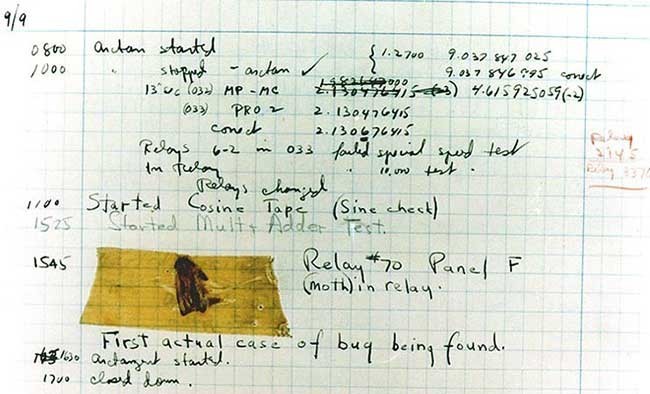 9/9
0800 arctan started { 1.2700 9.037 847 025
1000 " stopped - arctan ✓ 9.037 846 995 correct
13"uc (032) MP-MC 2.130476415 (-3) 4.615925059(-2)
(033) PRO 2 2.130476415
correct 2.130676415
Relays 6-2 in 033 failed special speed test
In Relay " 10.000 test.
Relay
2145
Relay 3370
Relays changed
1100 Started Cosine Tape (Sine check)
1525 Started Mult + Adder Test.
1545 Relay #70 Panel F
(moth) in relay.
First actual case of bug being found.
1630 arctangent started.
1700 closed down.